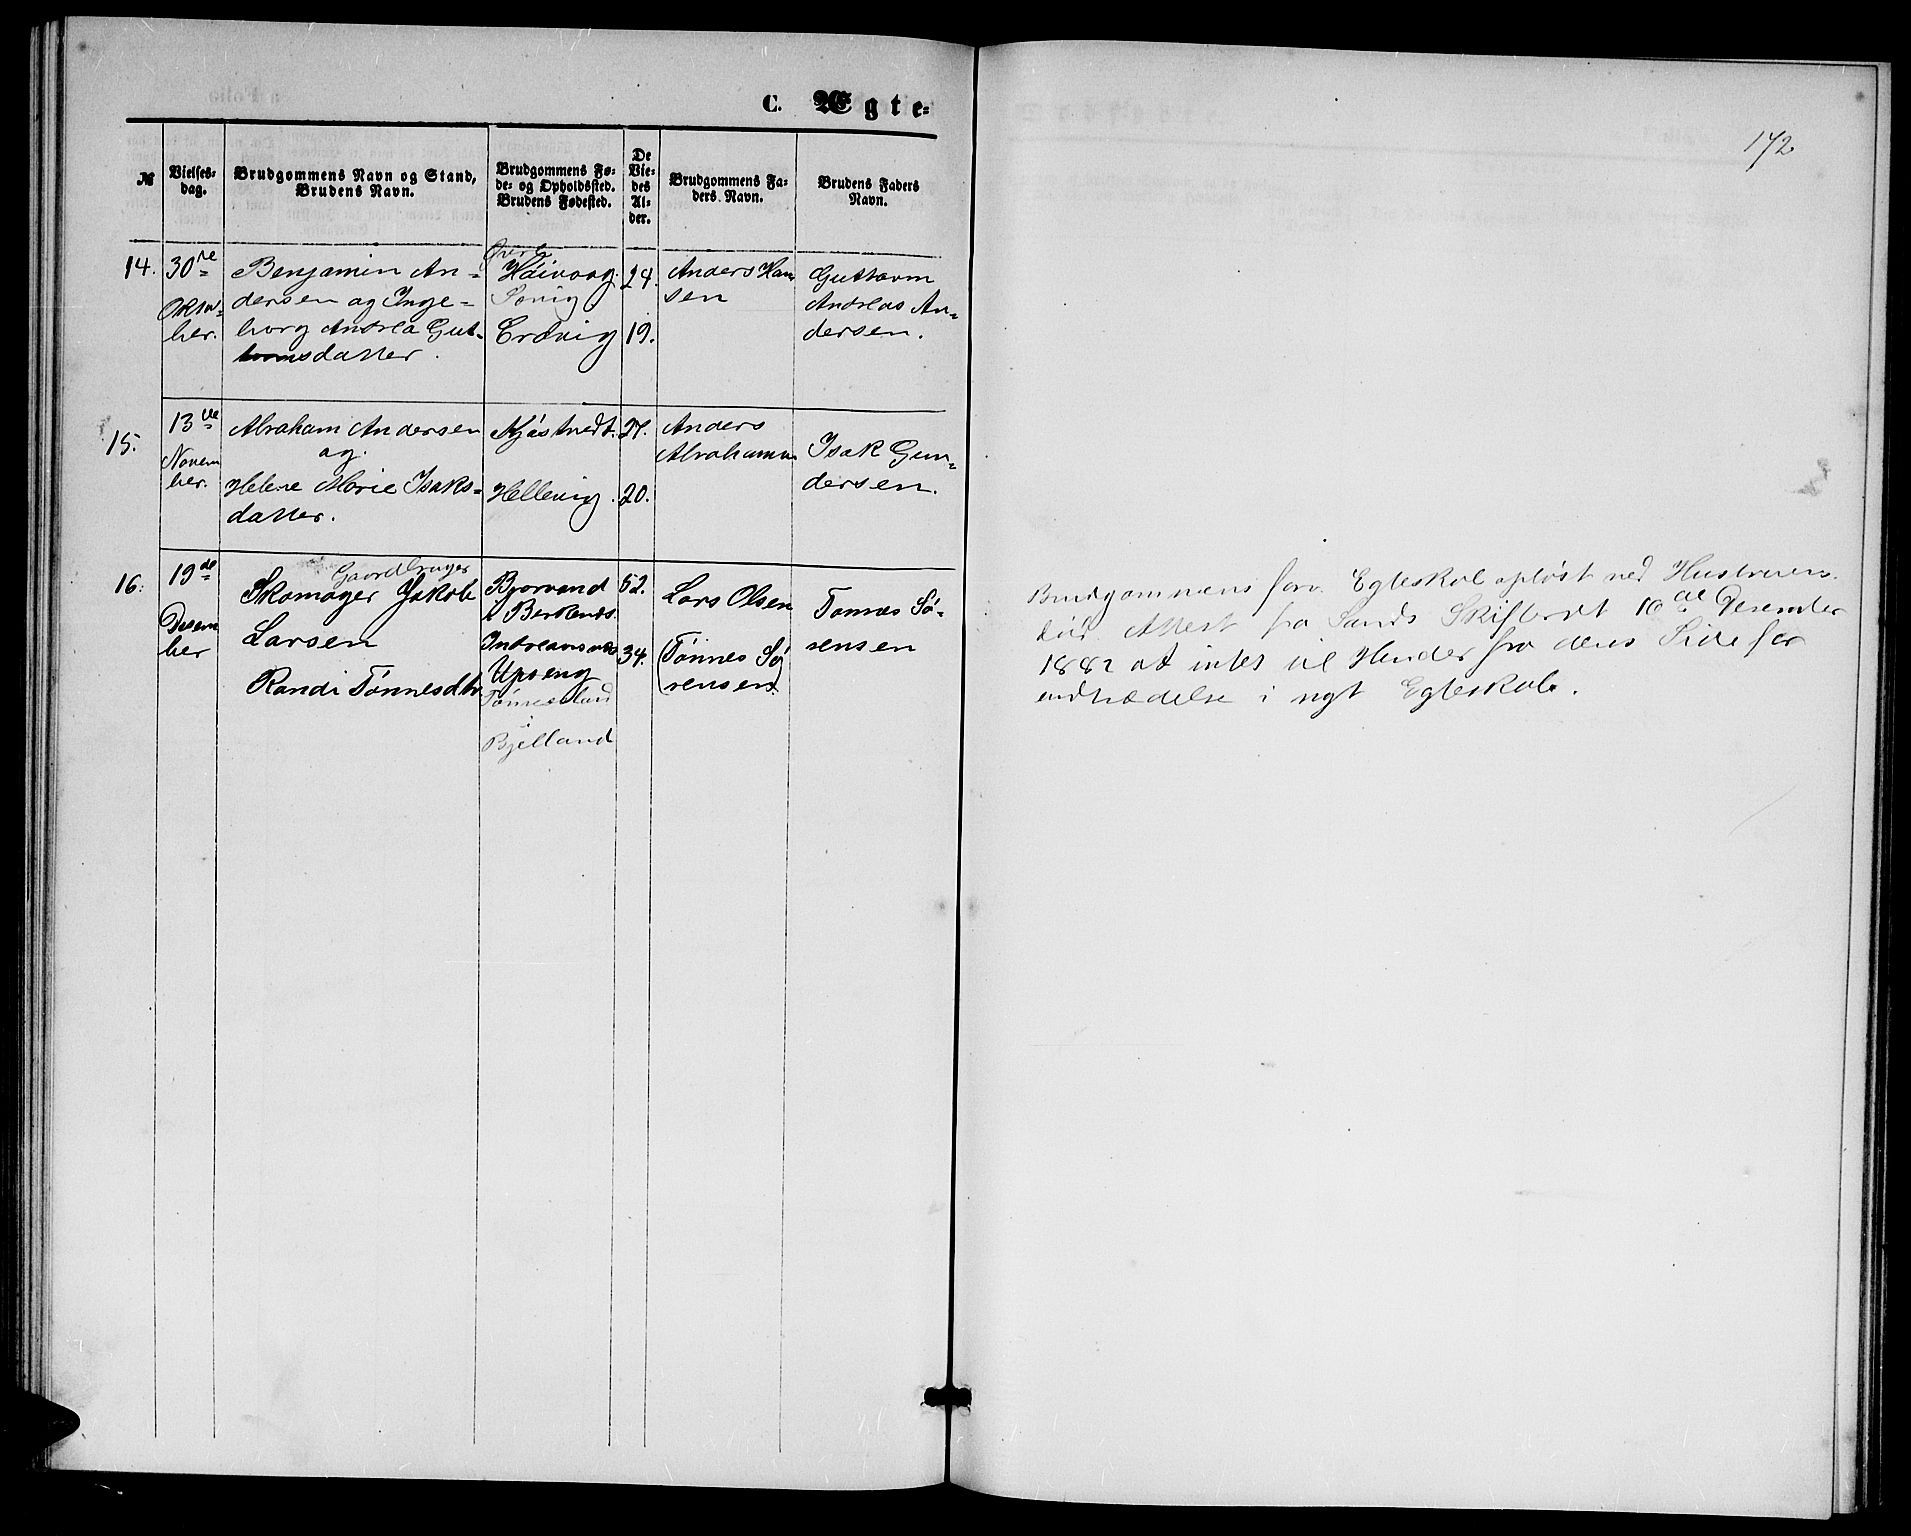 C. Ægte-
172
№
Vielses-
dag.
Brudgommens Navn og Stand,
Brudens Navn.
Brudgommens Fø-
de- og Opholdssted.
Brudens Fødested.
De
Vie-
des
Al-
der.
Brudgommens Fa-
ders Navn.
Brudens Faders
Navn.
14.
30
Oktb-
ber.
Benjamin An-
dersen og Inge-
borg Andrea Gut-
tormsdatter.
Høivaag.
24.
19.
Anders Han
sen
Guttorm
Andreas An-
dersen.
15.
13
Novem
ber.
Abraham Andersen
og
Helene Marie Isaks-
datter.
Hellevig.
27.
20.
Anders
Isak Gun-
dersen.
16.
19de
Desem
ber
Gaardbruger
Skomager Jakob
Larsen
Randi Tønnesdtr
Bjorvand
Upseng
i
Bjelland
52.
34.
Lars Olsen
(Tønnes Sø
rensen)
Tønnes Sø-
rensen
Brudgommens forr. Egteskab opløst ved Hustruens
Død. Attest fra Sands Skifteret 16de Desember
1882 at intet til Hinder fra dens Side for
indtrædelse i nyt Egteskab.